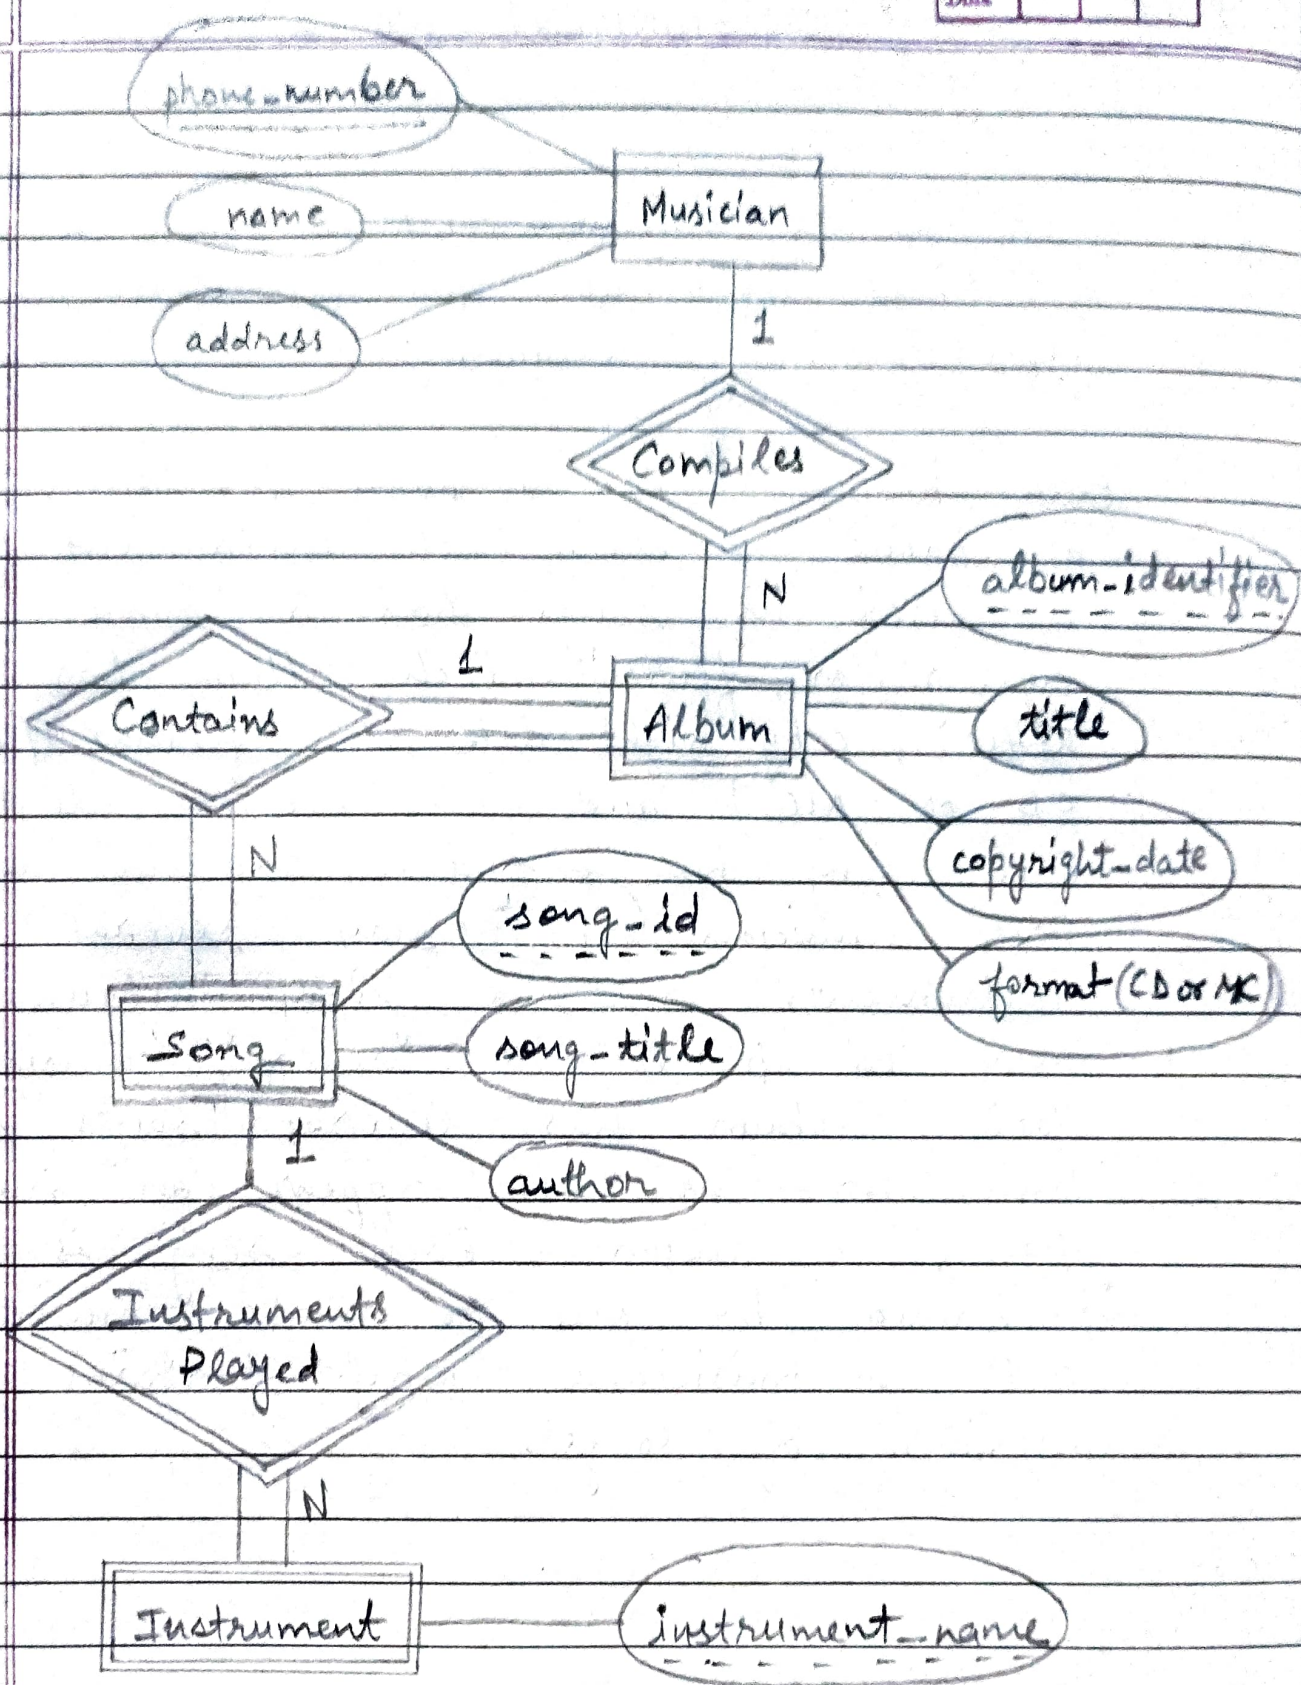 Date
phone_number
name
address
Musician
1
Compiles
N
album_identifier
1
Contains
Album
title
copyright_date
format (CD or MC)
N
song_id
Song
song_title
author
1
Instruments
Played
N
Instrument
instrument_name